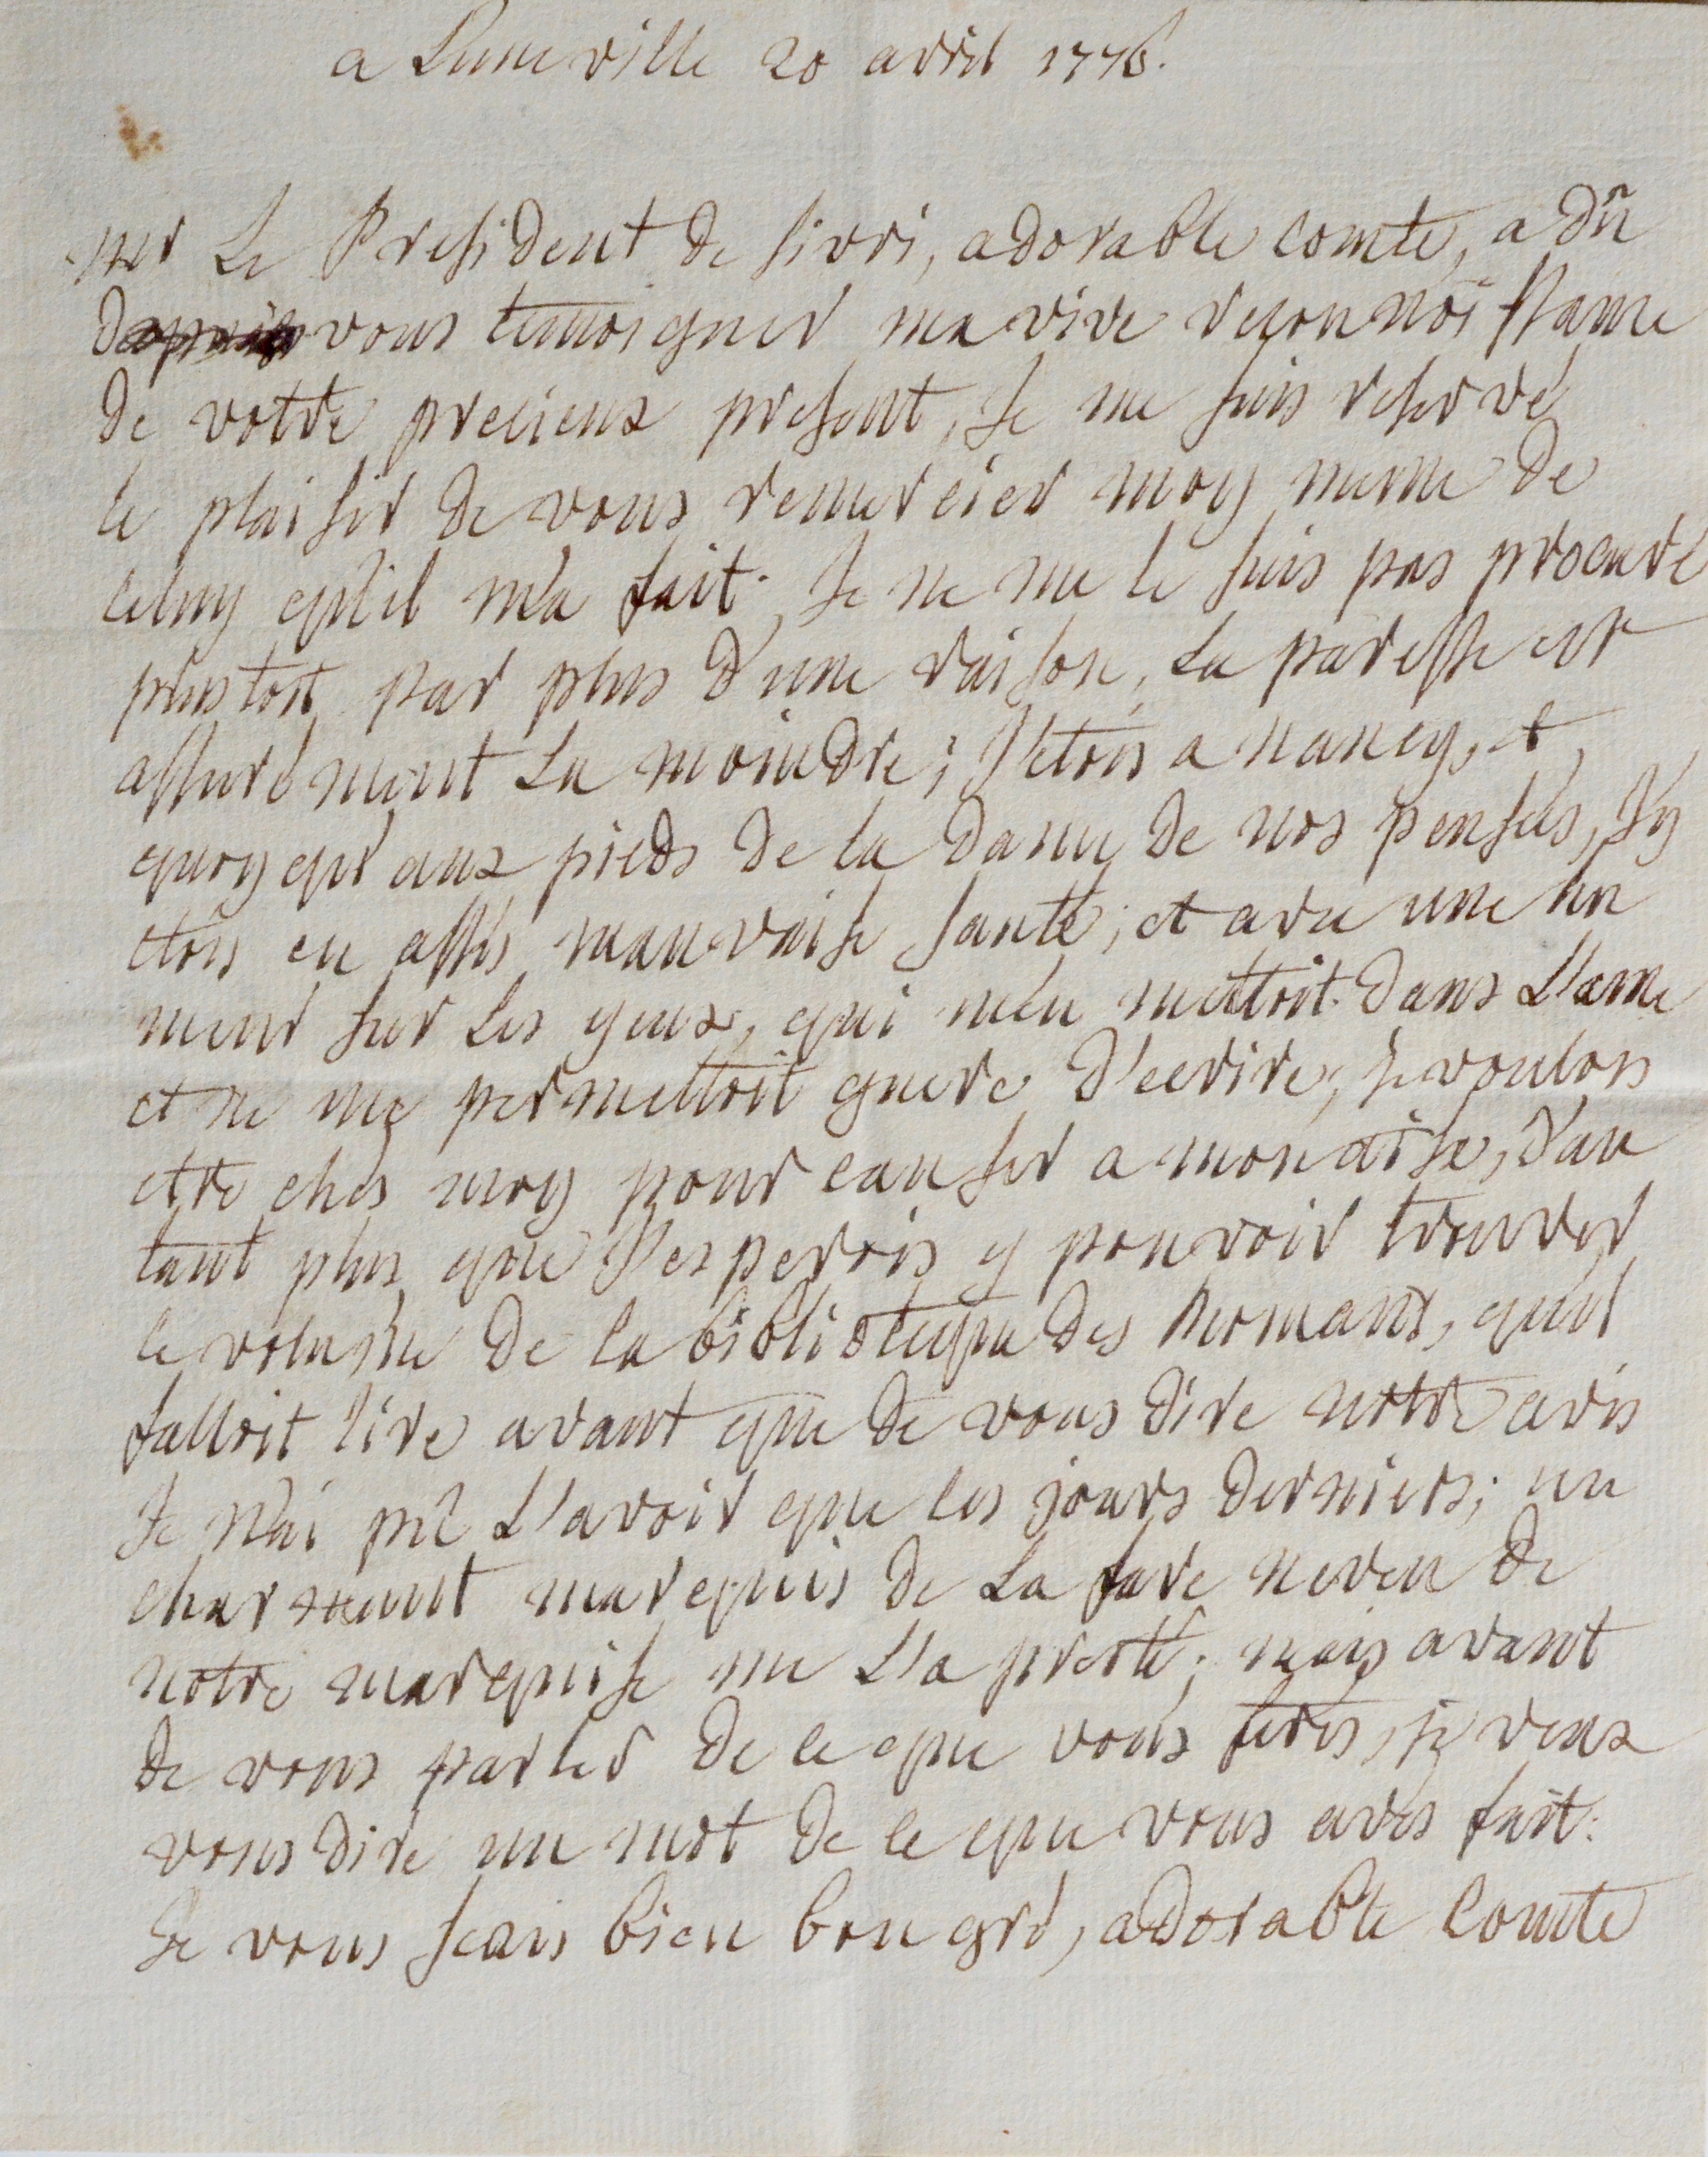 a Luneville 20 avril 1776.
mr Le President de sivri, adorable comte, a dû
vous temoigner ma vive reconnoissance
de votre precieux present, Je me suis reservé
le plaisir de vous remercier moy meme de
celuy qu'il m'a fait. Je ne me le suis pas procuré
plustost par plus d'une raison, La paresse est
assurément La moindre; J'etois a nancy, et,
quoyqu'aux pieds de la dame de nos pensées, J'y
etois en assés mauvaise santé; et avec une hu
meur sur Les yeux, qui m'en mettoit dans L'ame
et ne me permettoit guere d'ecrire; Je voulois
etre chés moy pour causer a mon aise, d'au
tant plus que J'esperois y pouvoir trouver
le volume de la biblioteque des Romans, qu'il
falloit lire avant que de vous dire notre avis
Je n'ai pû L'avoir que les jours derniers; un
charmant marquis de La fare neveu de
notre marquise me L'a presté; mais avant
de vous parler de ce que vous ferés, je veux
vous dire un mot de ce que vous avés fait.
Je vous scais bien bon gré, adorable Comte